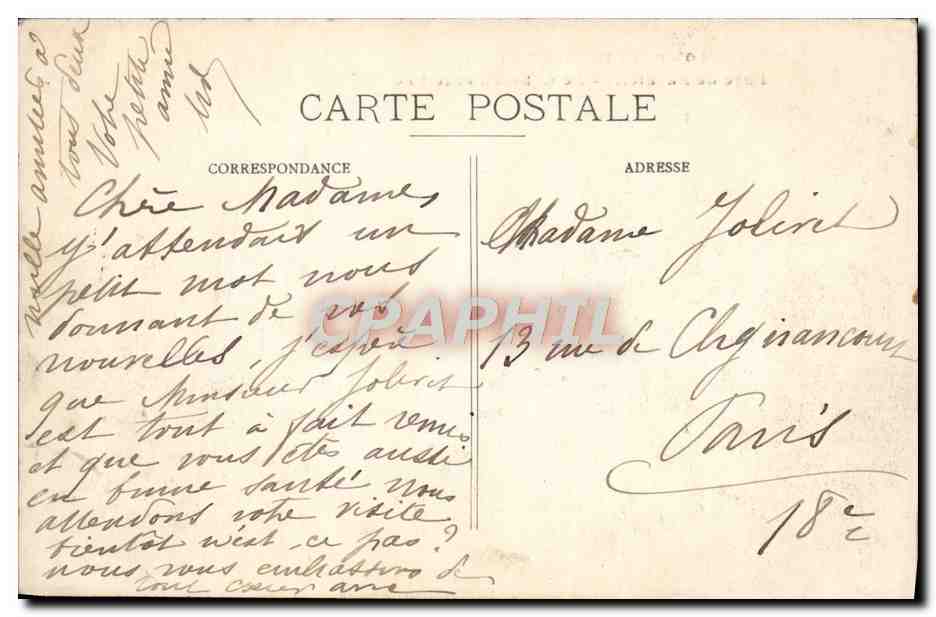 CARTE POSTALE
CORRESPONDANCE
Chère Madame,
J'attendais un
petit mot nous
donnant de vos
nouvelles, j'espère
que Monsieur Jolivet
est tout à fait remis
et que vous êtes aussi
en bonne santé nous
attendons votre visite
bientôt n'est-ce pas?
nous vous embrassons de
tout coeur avec
mille amitiés à
tous deux
Votre
petite
amie
ADRESSE
Madame Jolivet
13 rue de Clignancourt
Paris
18e
CPAPHIL